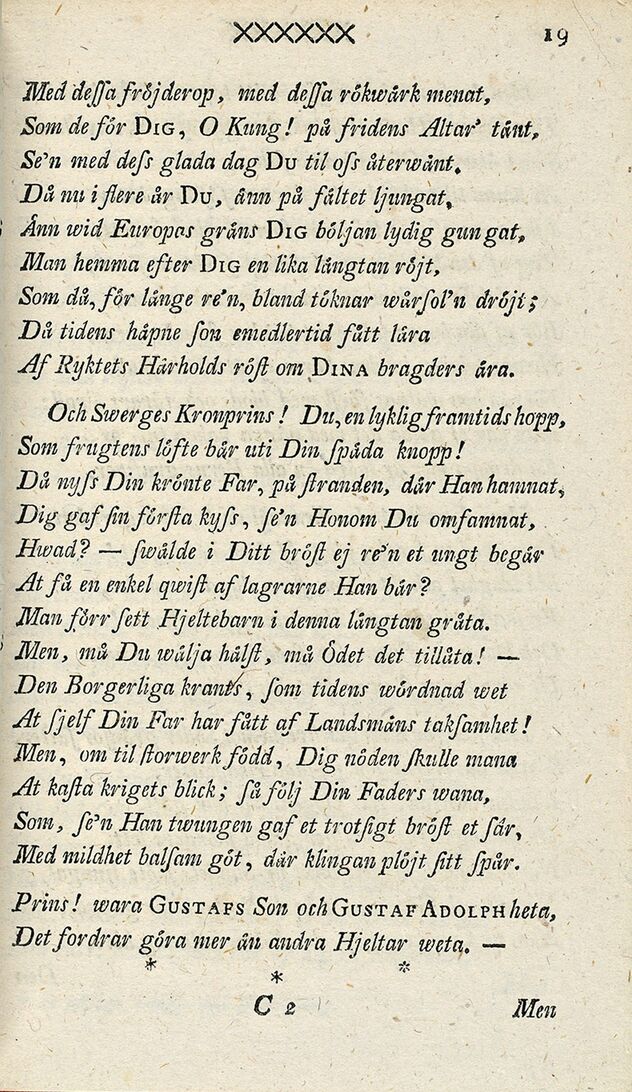 XXXXXX 19
Med deſſa fröjderop, med deſſa rökwärk menat,
Som de för DIG, O Kung! på fridens Altar' tänt,
Se'n med deſs glada dag DU til oſs återwänt.
Då nu i flere år DU, änn på fältet ljungat,
Änn wid Europas gräns DIG böljan lydig gungat,
Man hemma efter DIG en lika längtan röjt,
Som då, för länge re'n, bland töknar wårſol'n dröjt;
Då tidens håpne ſon emedlertid fått lära
Af Ryktets Härholds röſt om DINA bragders ära.
Och Swerges Kronprins! Du, en lyklig framtids hopp,
Som frugtens löfte bär uti Din ſpäda knopp!
Då nyſs Din krönte Far, på ſtranden, där Han hamnat,
Dig gaf ſin förſta kyſs, ſe'n Honom Du omfamnat,
Hwad? — ſwälde i Ditt bröſt ej re'n et ungt begär
At få en enkel qwiſt af lagrarne Han bär?
Man förr ſett Hjeltebarn i denna längtan gråta.
Men, må Du wälja hälſt, må Ödet det tillåta! —
Den Borgerliga krants, ſom tidens wördnad wet
At ſjelf Din Far har fått af Landsmäns takſamhet!
Men, om til ſtorwerk född, Dig nöden ſkulle mana
At kaſta krigets blick; ſå följ Din Faders wana,
Som, ſe'n Han twungen gaf et trotſigt bröſt et ſår,
Med mildhet balſam göt, där klingan plöjt ſitt ſpår.
Prins! wara GUSTAFS Son och GUSTAF ADOLPH heta,
Det fordrar göra mer än andra Hjeltar weta. —
* * *
C 2 Men